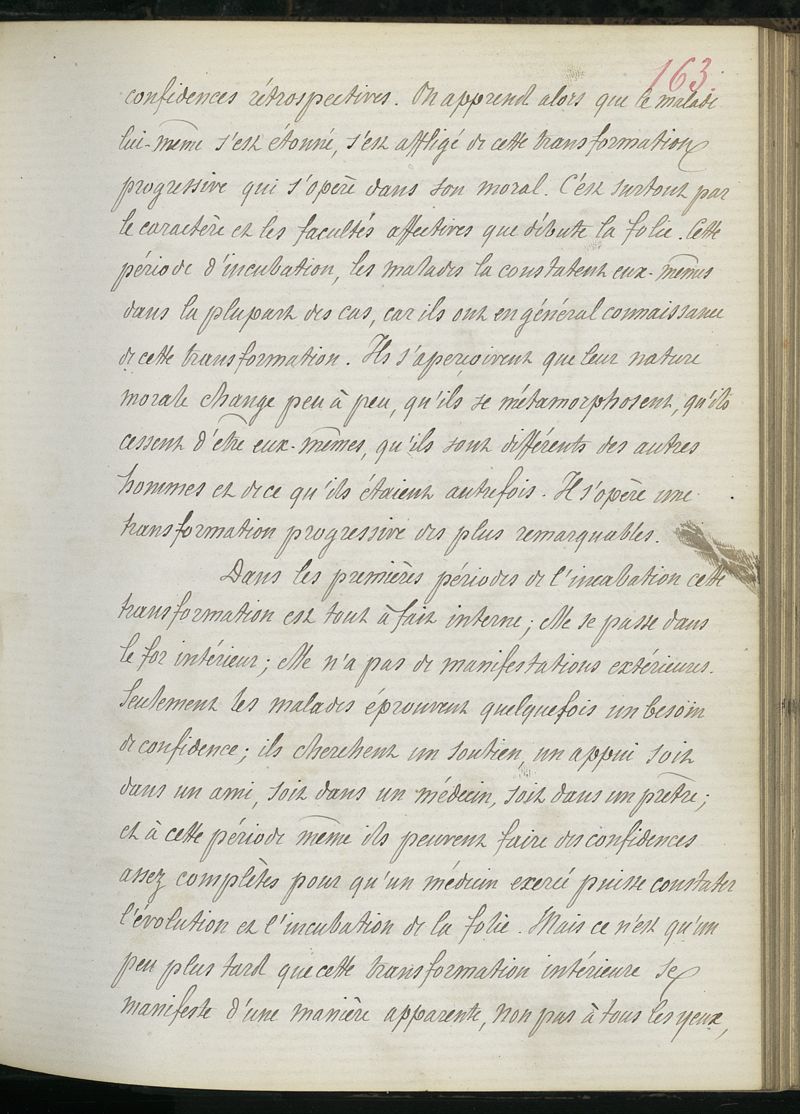 163
confidences rétrospectives. On apprend alors que le malade
lui-même s'est étonné, s'est affligé de cette transformation
progressive qui s'opère dans son moral. C'est surtout par
le caractère et les facultés affectives que débute la folie. Cette
période d'incubation, les malades la constatent eux-mêmes
dans la plupart des cas, car ils ont en général connaissance
de cette transformation. Ils s'aperçoivent que leur nature
morale change peu à peu, qu'ils se métamorphosent, qu'ils
cessent d'être eux-mêmes, qu'ils sont différents des autres
hommes et de ce qu'ils étaient autrefois. Il s'opère une
transformation progressive des plus remarquables.
Dans les premières périodes de l'incubation cette
transformation est tout à fait interne; elle se passe dans
le for intérieur; elle n'a pas de manifestations extérieures.
Seulement les malades éprouvent quelquefois un besoin
de confidence; ils cherchent un soutien, un appui soit
dans un ami, soit dans un médecin, soit dans un prêtre;
et à cette période même ils peuvent faire des confidences
assez complètes pour qu'un médecin exercé puisse constater
l'évolution et l'incubation de la folie. Mais ce n'est qu'un
peu plus tard que cette transformation intérieure se
manifeste d'une manière apparente, non pas à tous les yeux,